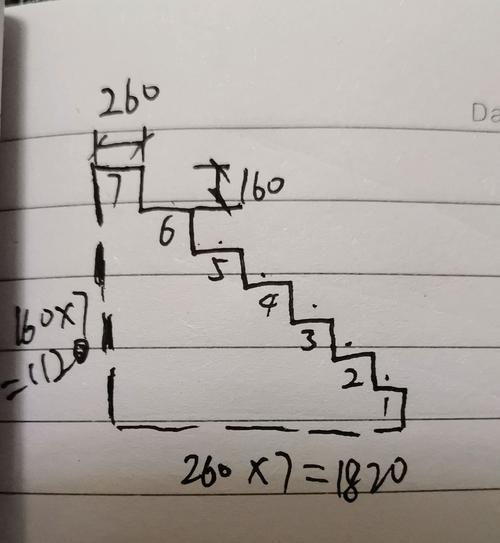 260
160
7
6
5
4
3
2
1
160×7
=1120
260×7=1820
Da